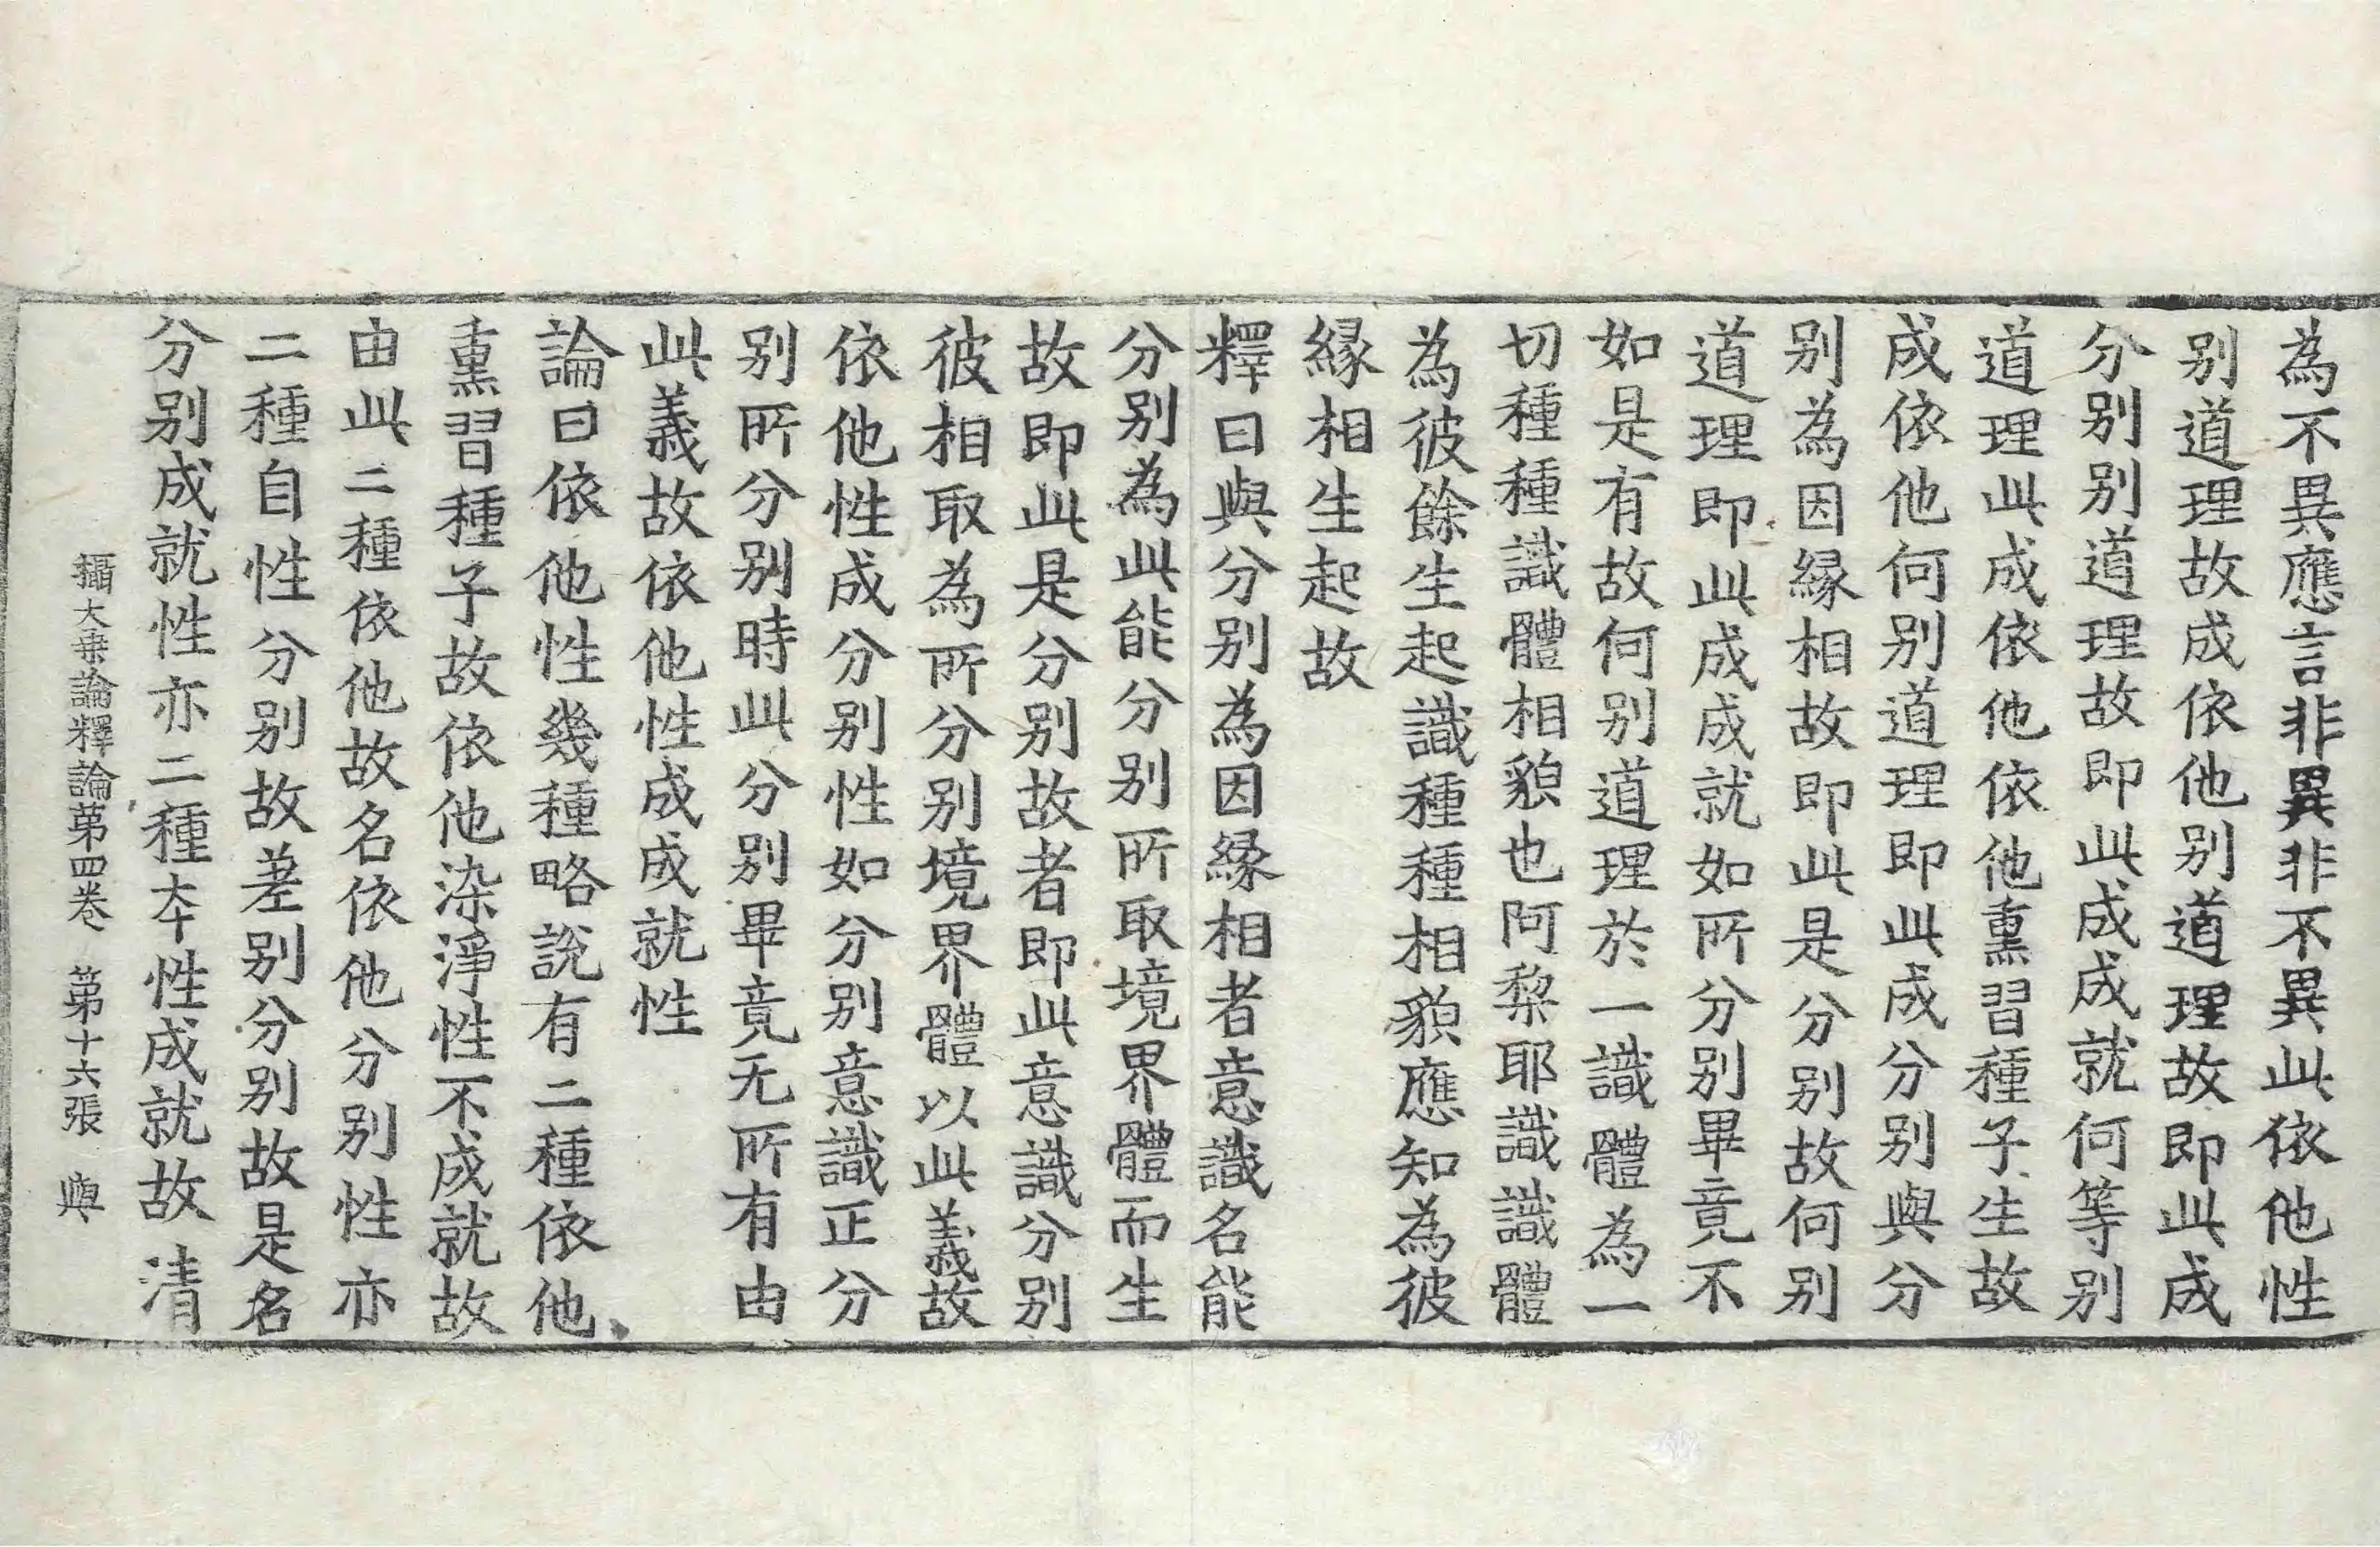 為不異應言非異非不異此依他性
別道理故成依他別道理故即此成
分別別道理故即此成成就何等別
道理此成依他依他熏習種子生故
成依他何別道理即此成分別與分
別為因緣相故即此是分別故何別
道理即此成成就如所分別畢竟不
如是有故何別道理於一識體為一
切種種識體相貌也阿梨耶識識體
為彼餘生起識種種相貌應知為彼
緣相生起故
釋曰與分別為因緣相者意識名能
分別為此能分別所取境界體而生
故即此是分別故者即此意識分別
彼相取為所分別境界體以此義故
依他性成分別性如分別意識正分
別所分別時此分別畢竟无所有由
此義故依他性成成就性
論曰依他性幾種略說有二種依他
熏習種子故依他染淨性不成就故
由此二種依他故名依他分別性亦
二種自性分別故差別分別故是名
分別成就性亦二種本性成就故清
攝大乗論釋論苐四卷 苐十六張 與